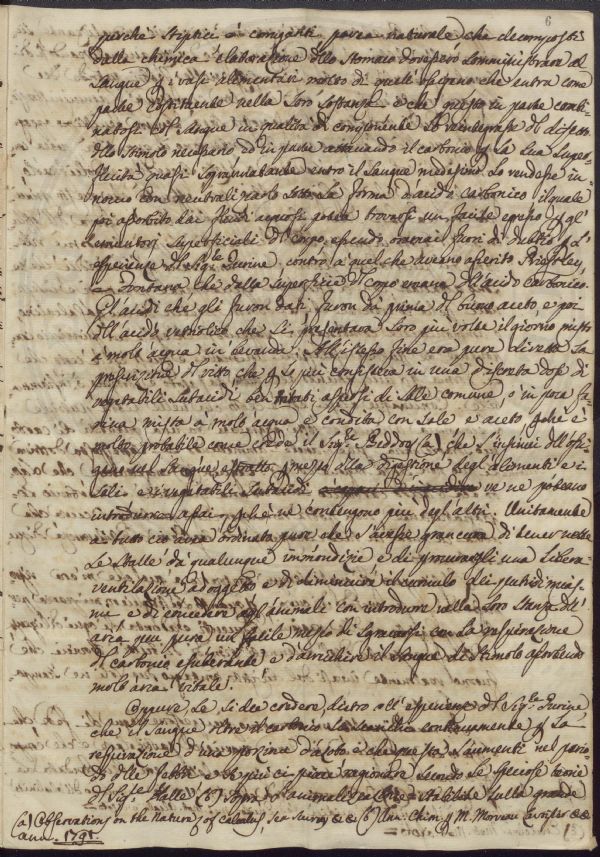 6
purchè stiptici o corrigenti parea naturale che decomposti
dalla chimica elaborazione dello stomaco dovessero somministrare al
Sangue p i vasi elementari molto di quell' ossigeno che entra come
parte costituente nella loro sostanza e che questo in parte combi-
natosi col Sangue in qualità di componente lo reintegrasse del difetto
dello stimolo necessario ed in parte attivando il carbonio p la sua super-
ficie quasi sopranuotante entro il Sangue medesimo lo rendesse in-
nocuo con neutralizzarlo sotto la forma d'acido carbonico il quale
poi assorbito dai fluidi acquosi potea trovarsi un facile egresso p gl'
emuntorj superficiali del Corpo essendo oramai fuori di dubbio p l'
esperienze del Sig.re Jurine contro a quel che aveano asserito Priestley,
e Fontana che dalla superficie del corpo emana dell'acido carbonico.
Gl'acidi che gli furon dati furon da prima del buono aceto e poi
dell'acido vetriolico che si presentava loro più volte il giorno misto
a molt'acqua in bevanda. All'istesso fine era pure diretta la
prescrizione del vitto che p lo più consisteva in una discreta dose di
vegetabili subacidi ben tritati aspersi di Sale comune, o in poca fa-
rina mista a molt'acqua e condita con Sale e aceto perchè è
molto probabile come crede il Sig.re Beddoes (a) che s'insinui dell'ossi-
gene nel Sangue estratto p mezzo della digestione degl'alimenti e i
Sali e i vegetabili subacidi ve ne potessero
introdurre assai perchè ne contengono più degl'altri. Unitamente
a tutto ciò avea ordinato pure che s'avesse gran cura di tener nette
le stalle da qualunque immondizie e di procurargli una libera
ventilazione ad oggetto e di diminuire il cumulo dei putridi mias-
mi e di concedere agl'animali con introdurre nella loro stanza dell'
aria più pura un facile mezzo di sgravarsi con la respirazione
del carbonio esuberante e d'arricchire il Sangue di stimolo assorbendo
molt'aria vitale.
Oppure se si dee credere dietro all'esperienze del Sig.re Jurine
che il Sangue oltre il carbonio si scarichi continuamente p la
respirazione d'una porzione d'azoto e che questa s'aumenti nel perio-
do delle febbri e se più ci piace ragionare secondo le speciose teorie
del Sig.re Halle (b) sopra l'animalizzazione stabilite sulla grande
(a) Observations on the nature of calculus, sea Scurvy &c &c (b) Ann. Chim. p M. Morveau Lavoisier &c &c
ann. 1791